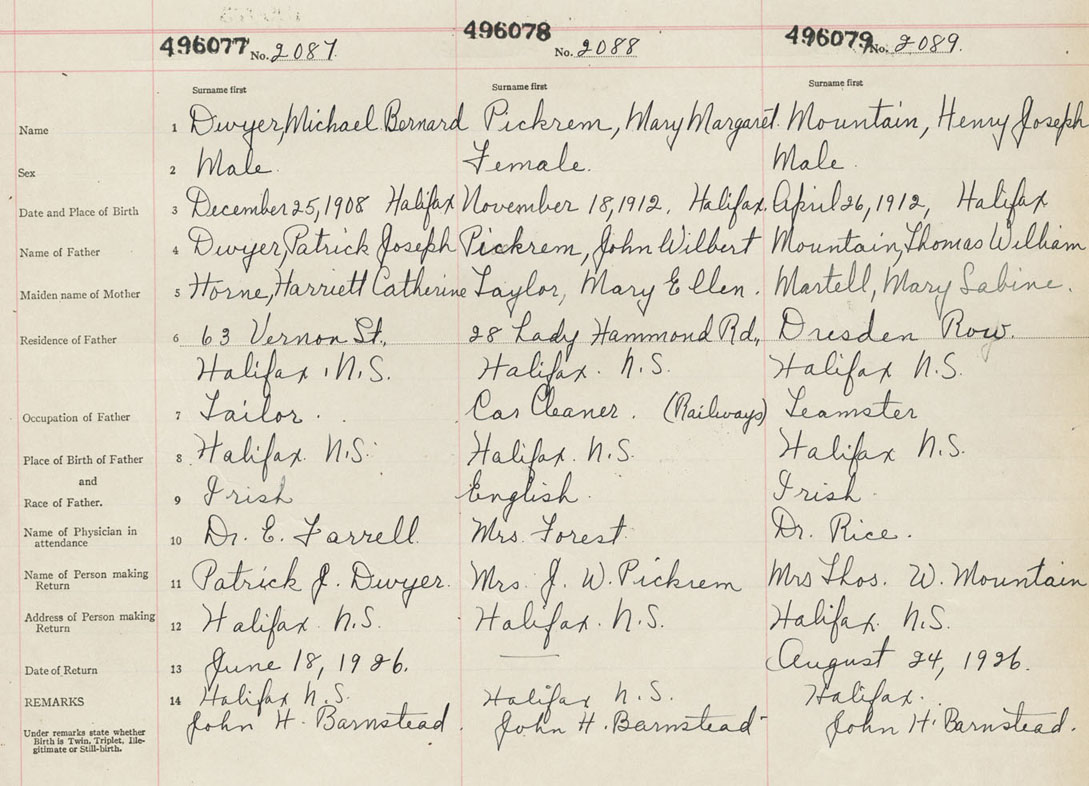 496077 No. 2087 496078 No. 2088 496079 No. 2089.
Surname first Surname first Surname first
Name 1 Dwyer, Michael Bernard Pickrem, Mary Margaret. Mountain, Henry Joseph
Sex 2 Male. Female. Male.
Date and Place of Birth 3 December 25, 1908 Halifax November 18, 1912, Halifax. April 26, 1912, Halifax
Name of Father 4 Dwyer, Patrick Joseph Pickrem, John Wilbert Mountain, Thomas William
Maiden name of Mother 5 Horne, Harriett Catherine Taylor, Mary Ellen. Martell, Mary Sabine.
Residence of Father 6 63 Vernon St., 28 Lady Hammond Rd., Dresden Row.
Halifax, N.S. Halifax. N.S. Halifax N.S.
Occupation of Father 7 Tailor. Car Cleaner. (Railways) Teamster
Place of Birth of Father 8 Halifax. N.S. Halifax. N.S. Halifax N.S.
and
Race of Father. 9 Irish English. Irish.
Name of Physician in attendance 10 Dr. E. Farrell Mrs. Forest Dr. Rice.
Name of Person making Return 11 Patrick J. Dwyer. Mrs. J. W. Pickrem Mrs Thos. W. Mountain
Address of Person making Return 12 Halifax. N.S. Halifax. N.S. Halifax. N.S.
Date of Return 13 June 18, 1926. August 24, 1926.
REMARKS 14 Halifax N.S. Halifax N.S. Halifax.
John H. Barnstead. John H. Barnstead John H. Barnstead.
Under remarks state whether
Birth is Twin, Triplet, Ille-
gitimate or Still-birth.